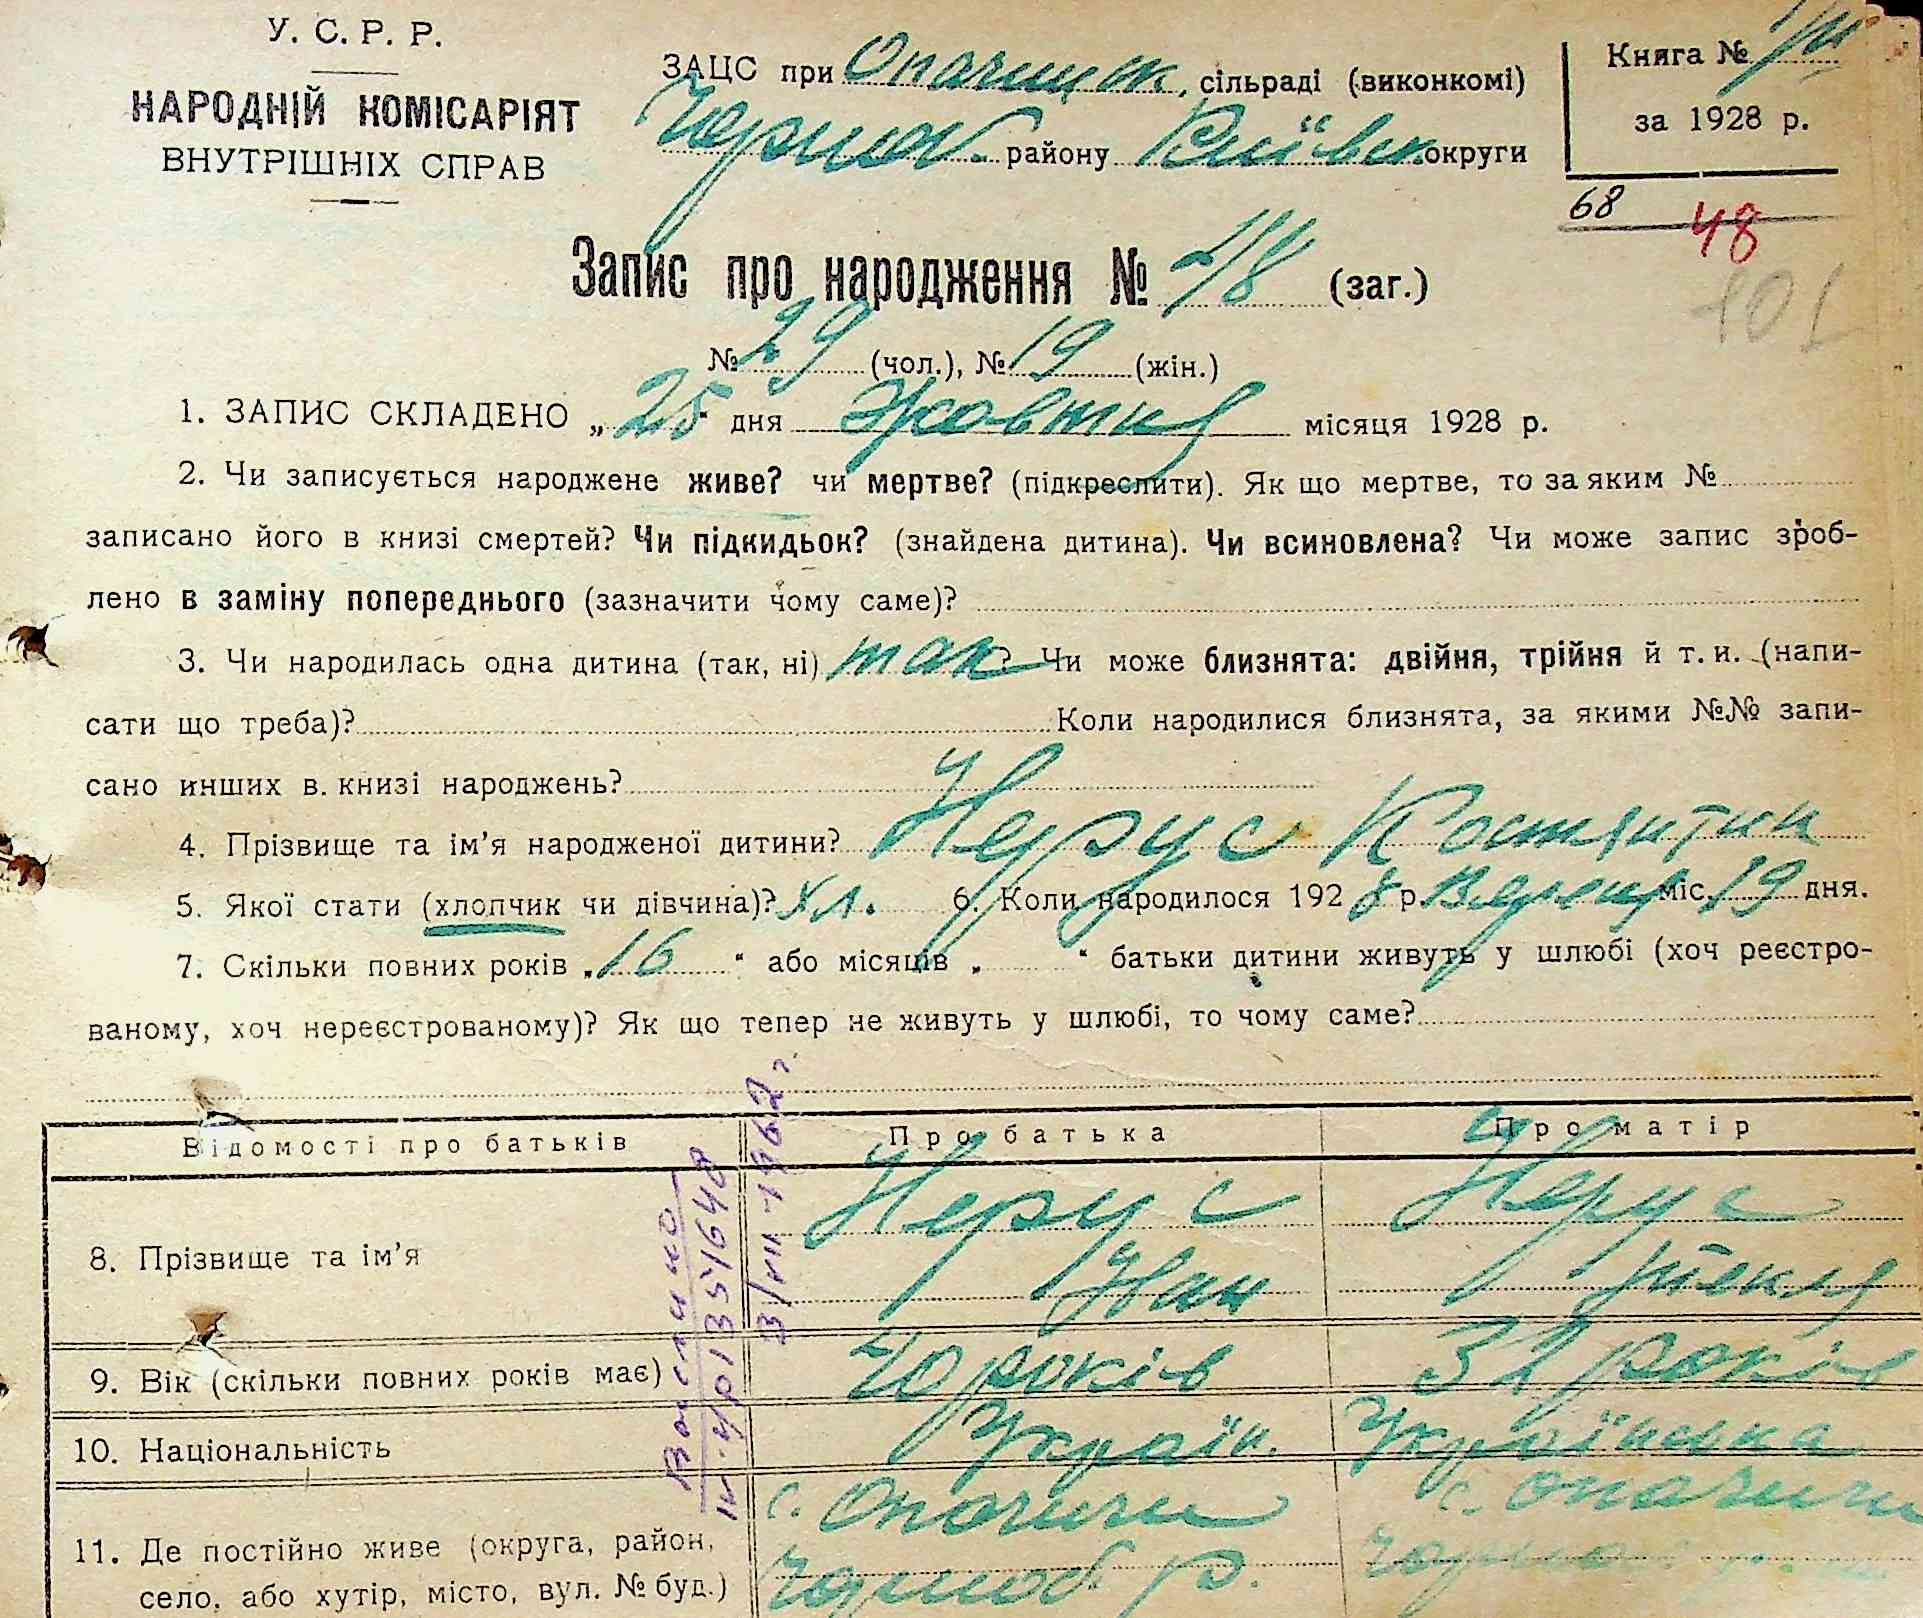 У. С. Р. Р.
НАРОДНІЙ КОМІСАРІЯТ
ВНУТРІШНІХ СПРАВ
ЗАЦС при Опачицьк. сільраді (виконкомі)
Чорноб. району Київськ. округи
Книга №
за 1928 р.
68
48
101
Запис про народження № 48 (заг.)
№ 29 (чол.), № 19 (жін.)
1. ЗАПИС СКЛАДЕНО „25“ дня Жовтня місяця 1928 р.
2. Чи записується народжене живе? чи мертве? (підкреслити). Як що мертве, то за яким №
записано його в книзі смертей? Чи підкидьок? (знайдена дитина). Чи всиновлена? Чи може запис зроб-
лено в заміну попереднього (зазначити чому саме)?
3. Чи народилась одна дитина (так, ні) так? Чи може близнята: двійня, трійня й т. и. (напи-
сати що треба)? Коли народилися близнята, за якими №№ запи-
сано инших в книзі народжень?
4. Прізвище та ім’я народженої дитини? Нерус Костянтин
5. Якої стати (хлопчик чи дівчина)? хл. 6. Коли народилося 1928 р. Верес. міс. 19 дня.
7. Скільки повних років „16“ або місяців „ “ батьки дитини живуть у шлюбі (хоч реєстро-
ваному, хоч нереєстрованому)? Як що тепер не живуть у шлюбі, то чому саме?
Відомості про батьків Про батька Про матір
8. Прізвище та ім’я Нерус Іван Нерус Текля
9. Вік (скільки повних років має) 40 років 32 років
10. Національність Україн. Українська
11. Де постійно живе (округа, район,
село, або хутір, місто, вул. № буд.)
с. Опачичі с. Опачичі
Чорноб. р.
Выслано
3/VII-1962 г.